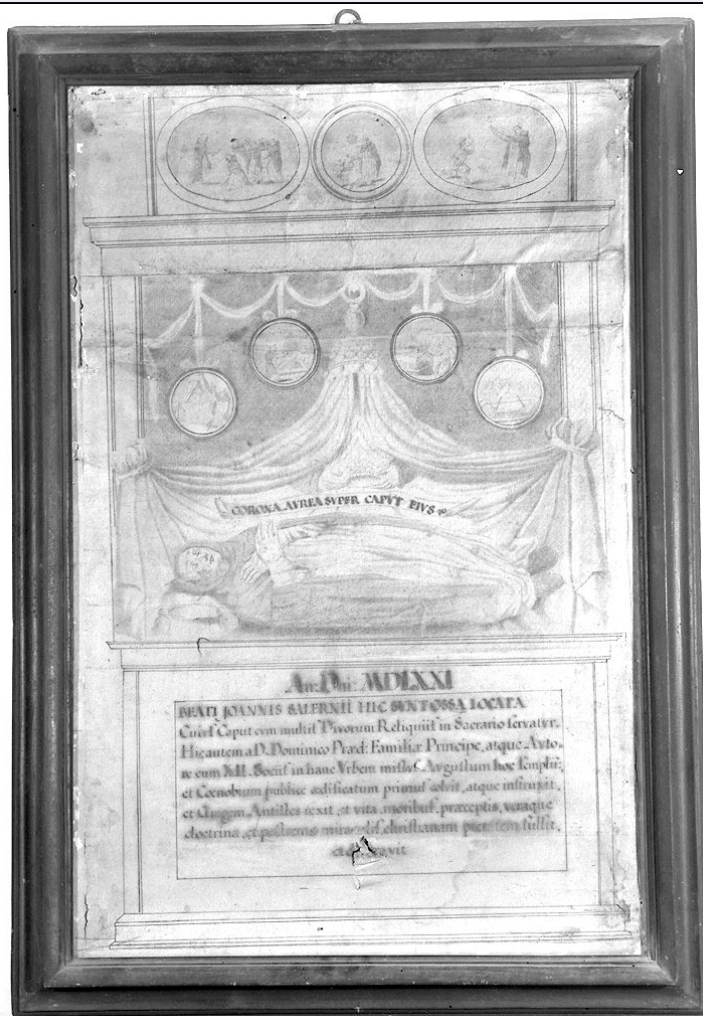 CORONA AVREA SVPER CAPVT EIVS
An: Dni: MDLXXI
BEATI JOANNIS SALERNII HIC SVNT OSSA LOCATA
Cuius Caput cum multis Divorum Reliquiis in Sacrario servatur.
Hic autem a D. Dominico Præd: Familiæ Principe, atque Auto-
re cum XII. Sociis in hanc Vrbem missus Augustum hoc Templū;
et Cœnobium publice ædificatum primus coluit, atque instruxit,
et Gregem Antistes rexit, et vita, moribus, præceptis, veraque
doctrina, et postremo miraculis christianam pietatem